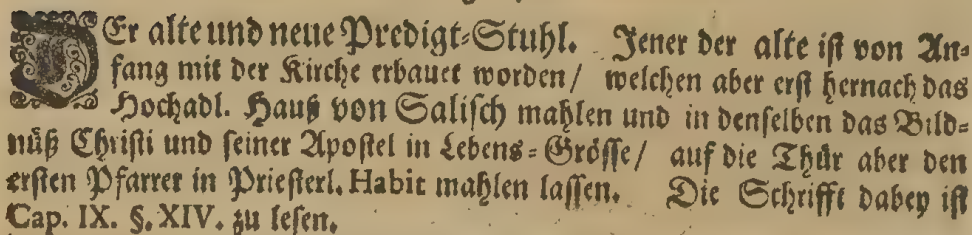 DEr alte und neue Predigt-Stuhl. Jener der alte ist von An-
fang mit der Kirche erbauet worden/ welchen aber erst hernach das
Hochadl. Hauß von Salisch mahlen und in denselben das Bild-
nüß Christi und seiner Apostel in Lebens-Grösse/ auf die Thür aber den
ersten Pfarrer in Priesterl. Habit mahlen lassen. Die Schrifft dabey ist
Cap. IX. §. XIV. zu lesen.